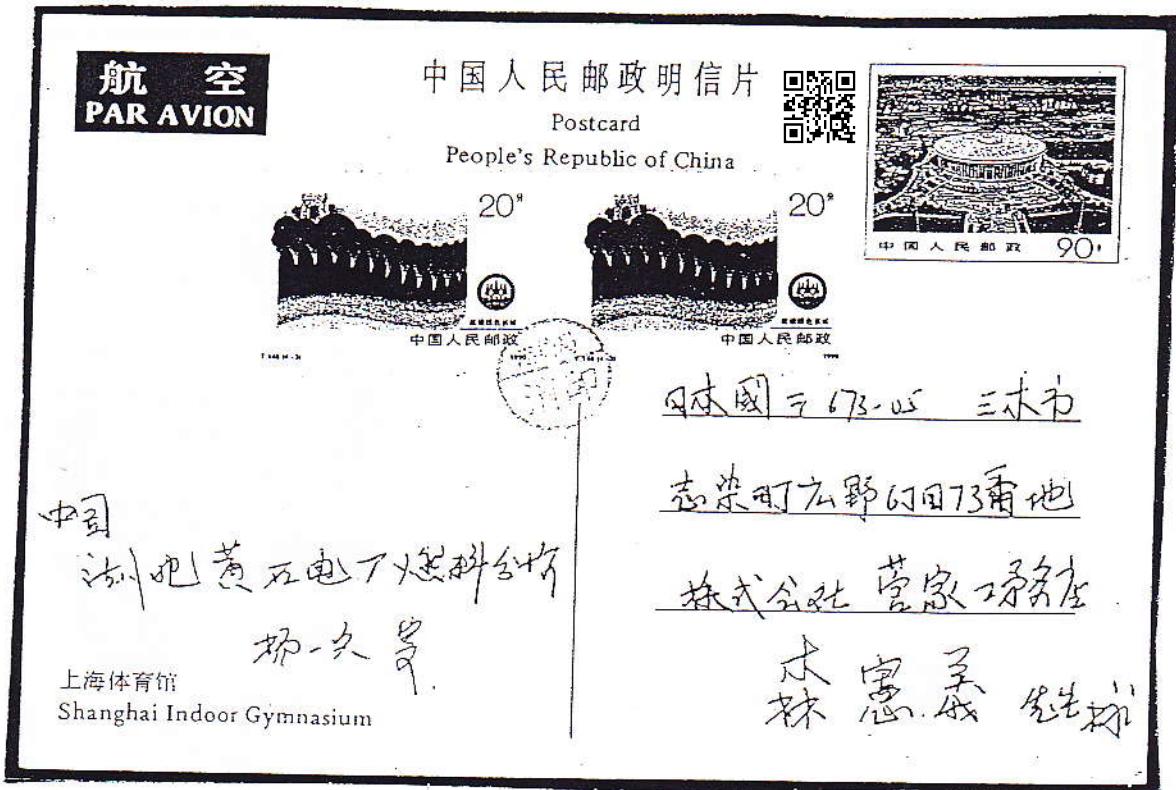 航 空
PAR AVION
中国人民邮政明信片
Postcard
People's Republic of China
20分
中国人民邮政
1990
20分
中国人民邮政
1990
中国人民邮政 90分
日本國〒673-05 三木市
志染町広野6丁目73番地
株式会社 菅家工務店
憲義 先生
中国
湖北黄石电厂燃料分
杨
上海体育馆
Shanghai Indoor Gymnasium